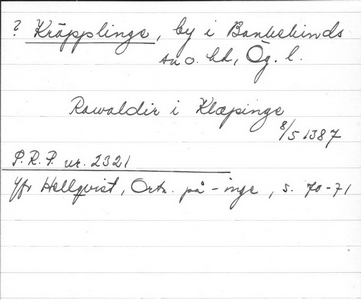 ? Kräpplinge, by i Bankekinds
sn o. hd, Ög. l.
Rawaldir i Klæpinge
8/5 1387
P.R.P. nr. 2321
Jfr Hellqvist, Ortn. på -inge, s. 70-71